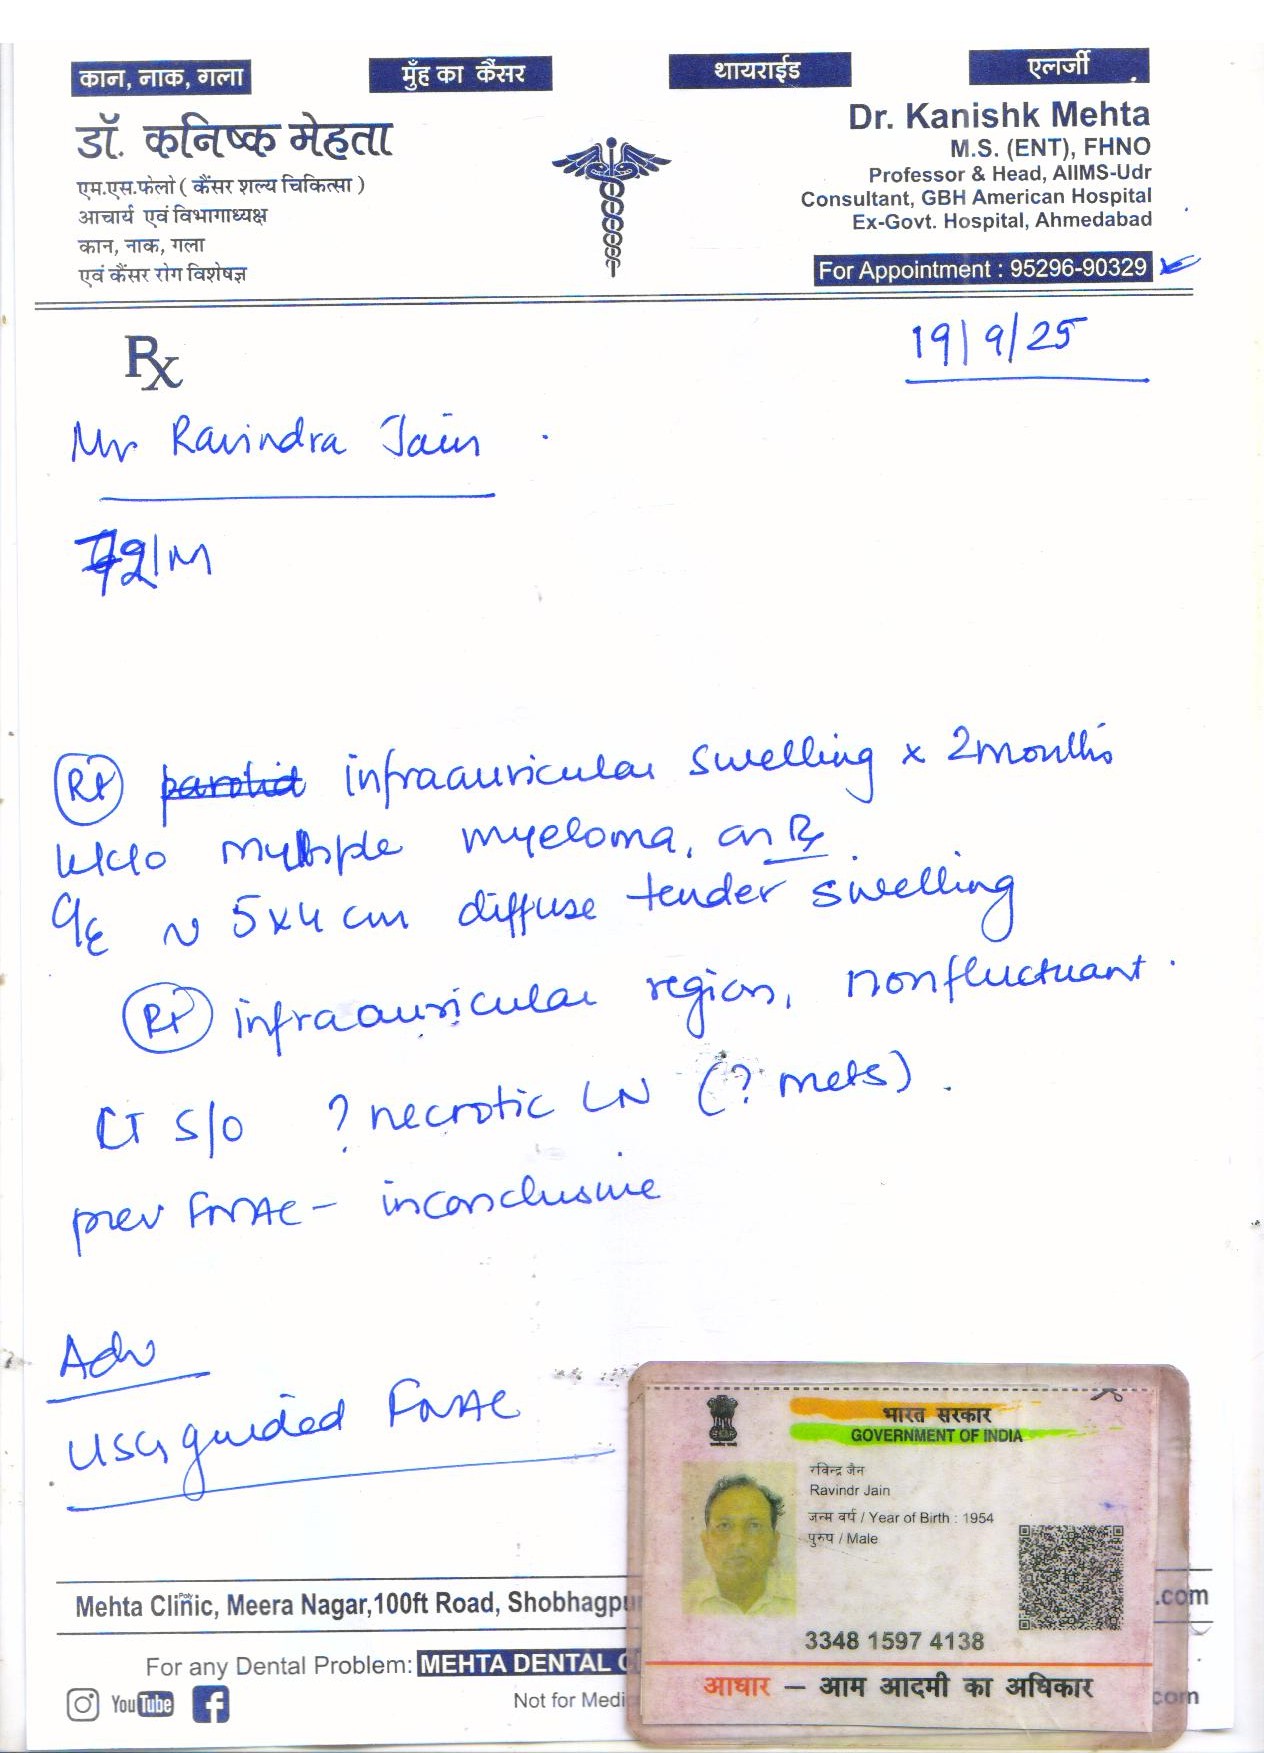 कान, नाक, गला
मुँह का कैंसर
थायराईड
एलर्जी
डॉ. कनिष्क मेहता
एम.एस.फेलो ( कैंसर शल्य चिकित्सा )
आचार्य एवं विभागाध्यक्ष
कान, नाक, गला
एवं कैंसर रोग विशेषज्ञ
Dr. Kanishk Mehta
M.S. (ENT), FHNO
Professor & Head, AIIMS-Udr
Consultant, GBH American Hospital
Ex-Govt. Hospital, Ahmedabad
For Appointment : 95296-90329
Rx
19/9/25
Mr Ravindra Jain
72/M
Rt parotid infraauricular swelling x 2 months
k/c/o multiple myeloma, on Rx
O/E ~ 5x4 cm diffuse tender swelling
Rt infraauricular region, nonfluctuant.
CT s/o ? necrotic LN (? mets).
prev FNAC - inconclusive
Adv
USG guided FNAC
भारत सरकार
GOVERNMENT OF INDIA
रविन्द्र जैन
Ravindr Jain
जन्म वर्ष / Year of Birth : 1954
पुरुष / Male
3348 1597 4138
आधार – आम आदमी का अधिकार
Mehta Clinic, Meera Nagar,100ft Road, Shobhagpu
.com
For any Dental Problem: MEHTA DENTAL C
YouTube
Not for Medi
com